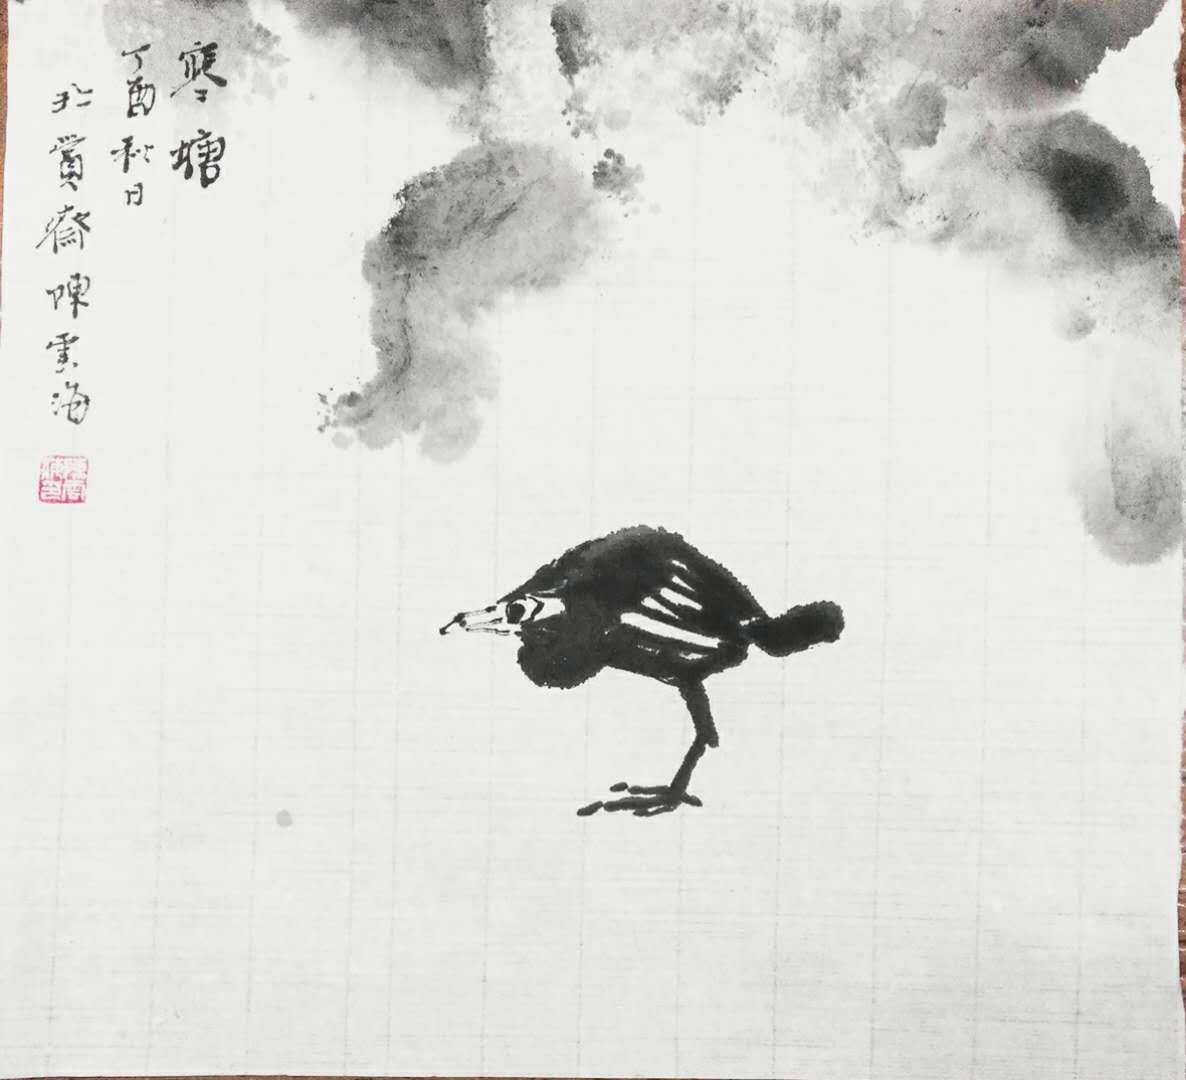 寒塘
丁酉秋日
於賞齋陳雲海